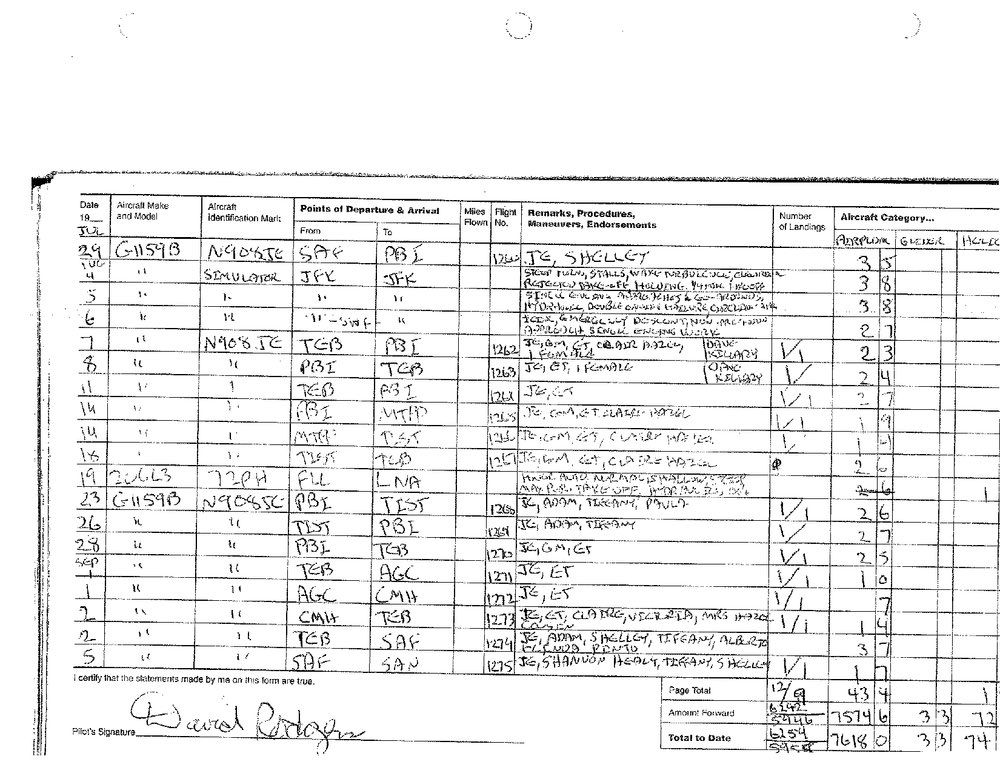 Date Aircraft Make Aircraft Points of Departure & Arrival Miles Flight Remarks, Procedures, Number Aircraft Category...
19__ and Model Identification Mark From To Flown No. Maneuvers, Endorsements of Landings
JUL AIRPLANE GLIDER HELIC
29 G1159B N908JE SAF PBI 1260 JE, SHELLEY 3 5
AUG
4 " SIMULATOR JFK JFK STEEP TURN, STALLS, WAKE TURBULENCE, 3 8
REJECTED TAKE-OFF, HOLDING,
5 " " " " SINGLE ENGINE APPROACHES & GO-AROUNDS, 3 8
6 " " " -SWF- " EMERGENCY DESCENT, NON PRECISION 2 7
APPROACH SINGLE ENGINE WORK
7 " N908JE TEB PBI 1262 JE, GM, ET, CLAIR HAZEL, DAVE 1/1 2 3
1 FEMALE KILLARY
8 " " PBI TEB 1263 JE, ET, 1 FEMALE DAVE 1/ 2 4
KILLARY
11 " " TEB PBI 1264 JE, ET 1/1 2 7
14 " " PBI 1265 JE, GM, ET, CLAIRE HAZEL 1 9
14 " " TIST 1266 JE, GM, ET, CLAIRE HAZEL 1/ 1
18 " " TIST TEB 1267 JE, GM, ET, CLAIRE HAZEL 2 6
19 206L3 72PH FLL LNA HOVER AUTO, NORMAL, SHALLOW, 1
MAX PERF. TAKE OFF, HYDRAULICS,
23 G1159B N908JE PBI TIST 1268 JE, ADAM, TIFFANY, PAULA 1/1 2 6
26 " " TIST PBI 1269 JE, ADAM, TIFFANY 1/ 2 7
28 " " PBI TEB 1270 JE, GM, ET 1/1 2 5
SEP
1 " " TEB AGC 1271 JE, ET 1/1 1 0
1 " " AGC CMH 1272 JE, ET 1/1 7
2 " " CMH TEB 1273 JE, ET, CLAIRE, VICTORIA, MRS HAZEL 1/1 1 4
COUSEN
2 " " TEB SAF 1274 JE, ADAM, SHELLEY, TIFFANY, ALBERTO 3 7
PINTO
5 " " SAF SAN 1275 JE, SHANNON HEALY, TIFFANY, SHELLEY 1/1 1 7
I certify that the statements made by me on this form are true. Page Total 12/9 43 4 1
Amount Forward 6242 5946 7574 6 3 3 72
Pilot's Signature David Rodgers Total to Date 6254 7618 0 3 3 74